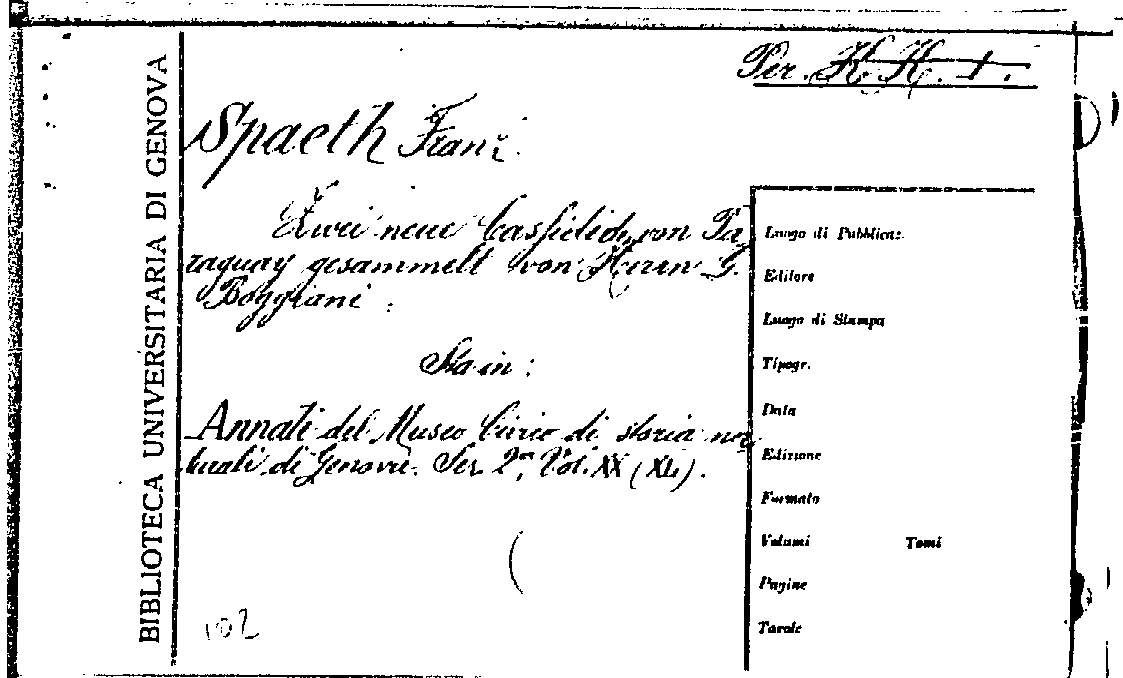 BIBLIOTECA UNIVERSITARIA DI GENOVA
Per. K K. 1.
Spaeth Franz.
Zwei neue Cassididen von Pa
raguay gesammelt von Herrn G.
Boggiani.
Sta in:
Annali del Museo Civico di storia na
turali di Genova. Ser. 2ª, Vol. XX (XL).
102
Luogo di Pubblicaz.
Editore
Luogo di Stampa
Tipogr.
Data
Edizione
Formato
Volumi Tomi
Pagine
Tavole